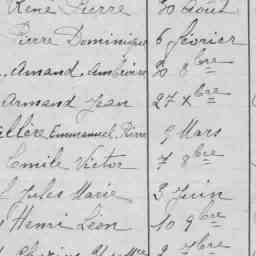 René Pierre 30 Août
Pierre Dominique 6 février
Amand Ambroise 8bre
Armand Jean 27 Xbre
Emmanuel Pierre 9 Mars
Emile Victor 7 8bre
Jules Marie 3 Juin
Henri Léon 10 9bre
2 7bre